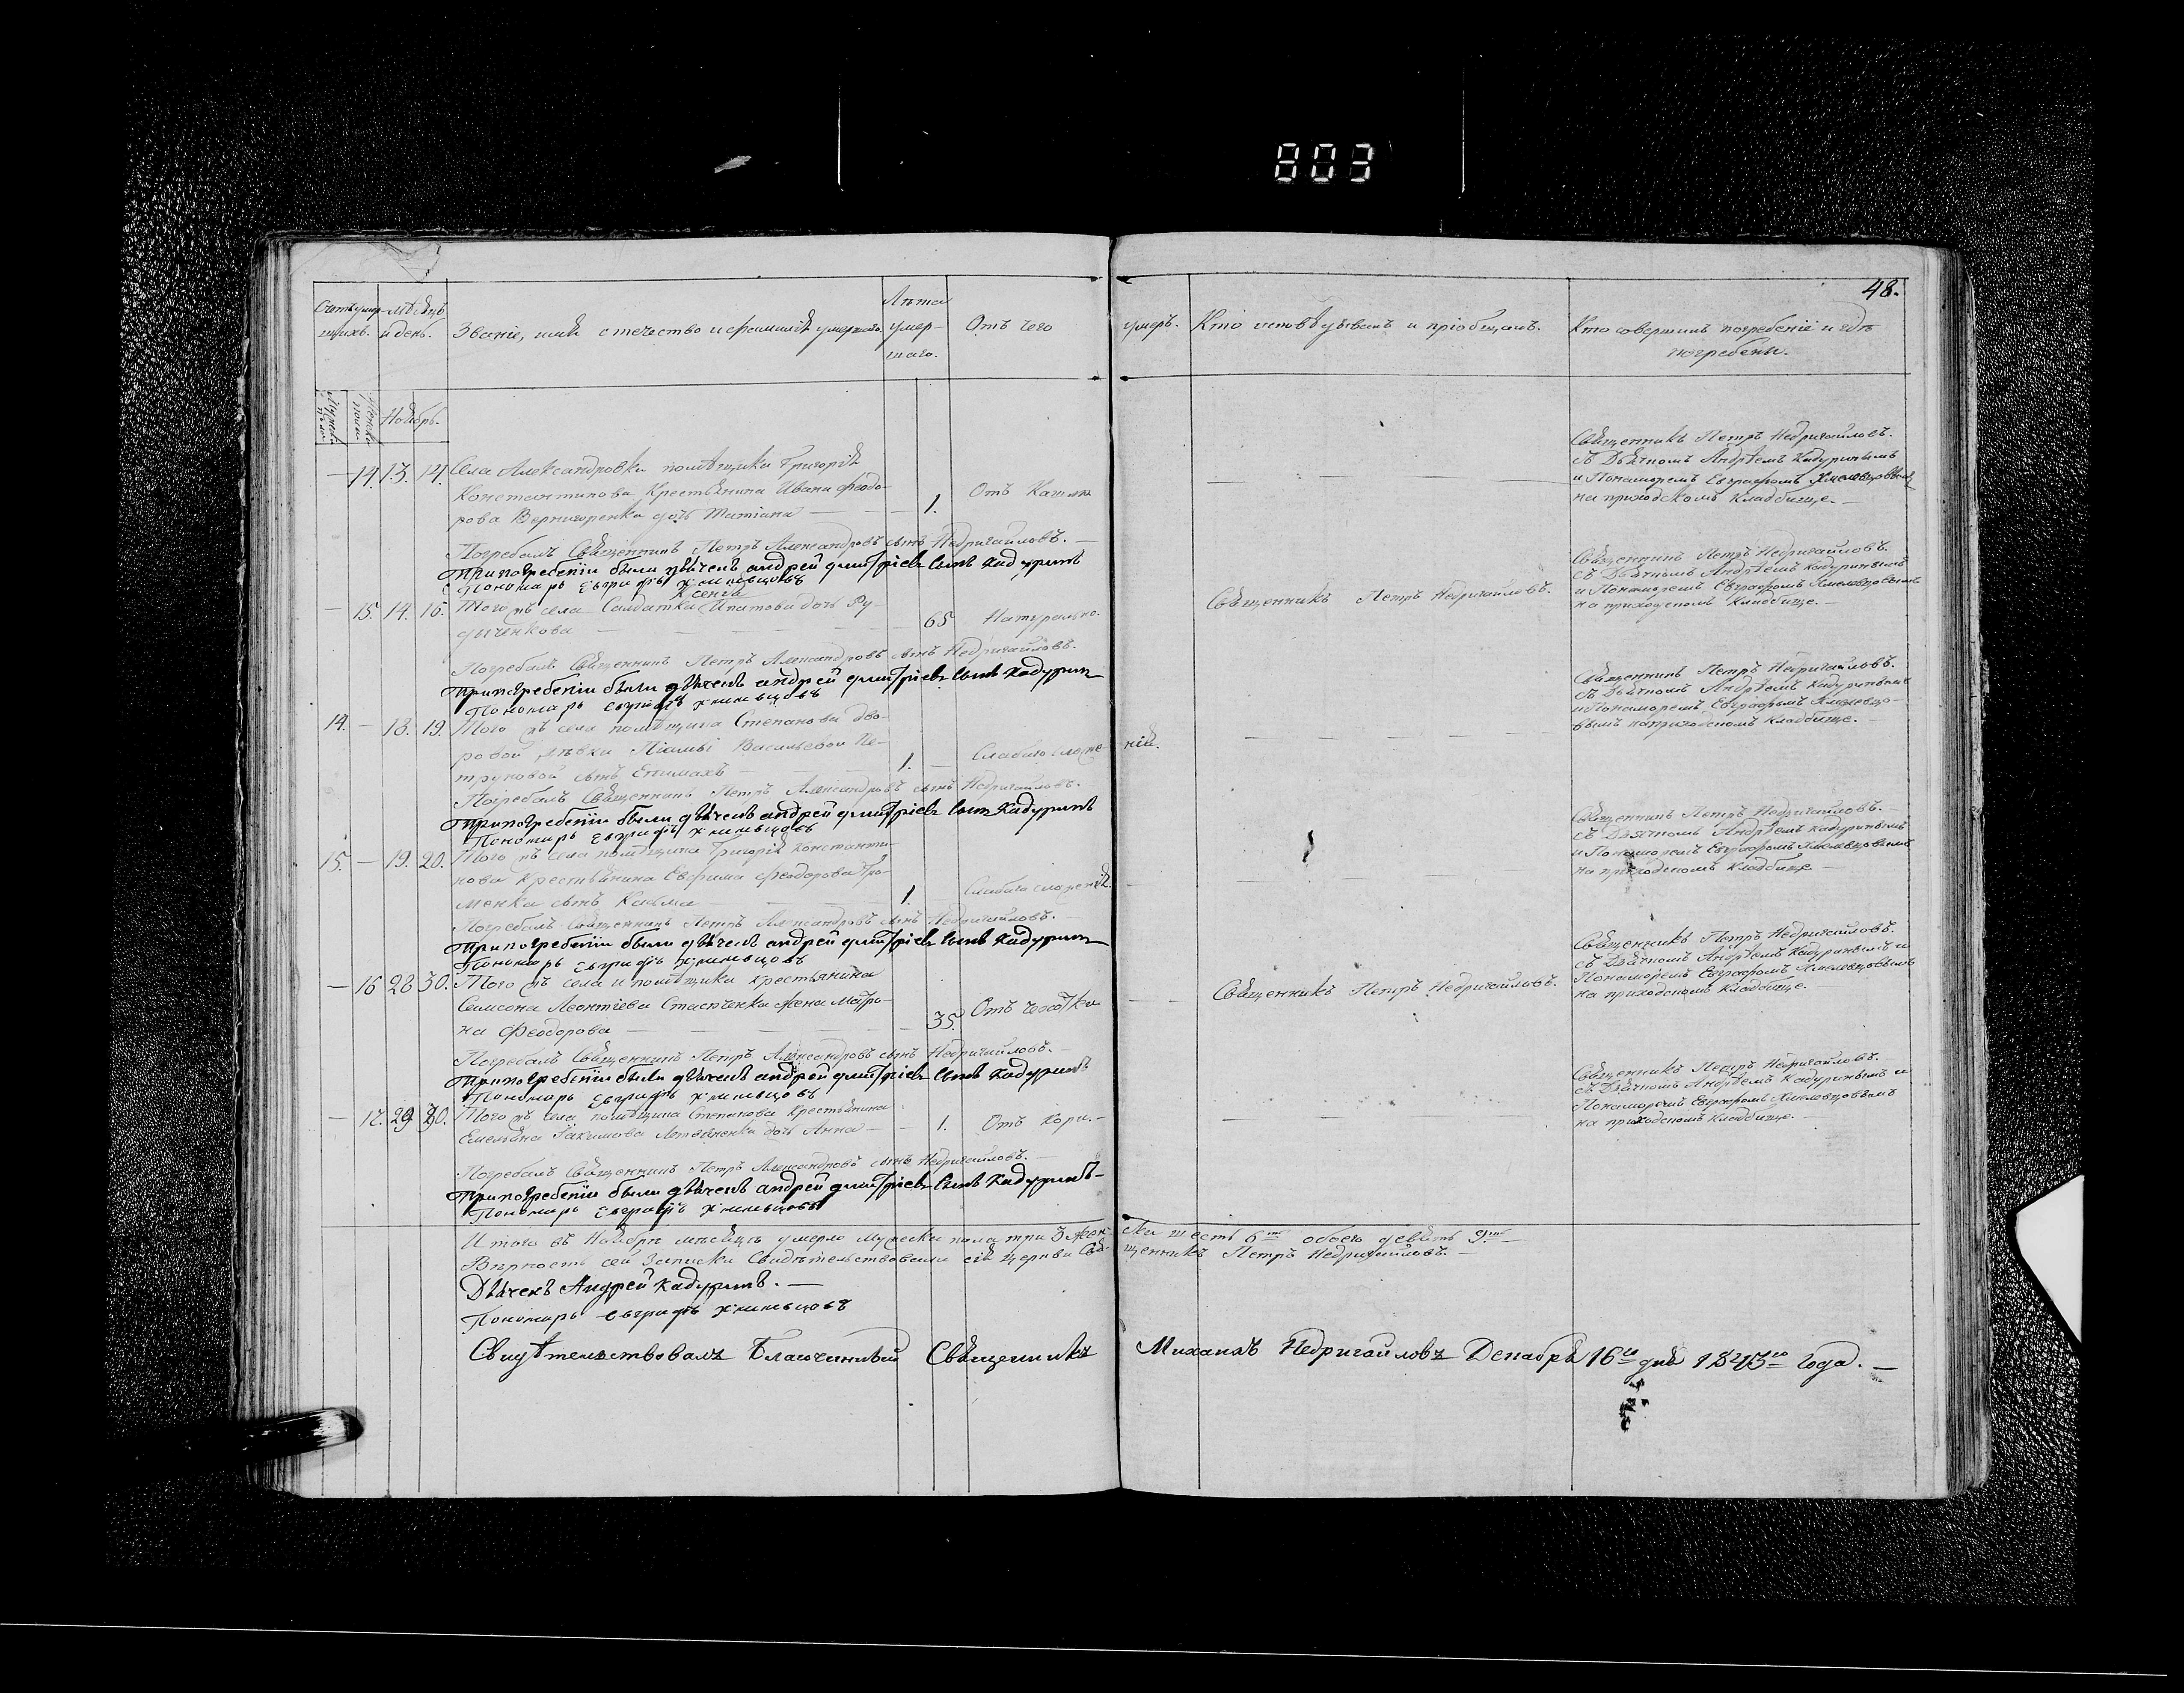 803
48.
Счетъ умер- Мѣсяцъ
шихъ. и день.
Званіе, имя отечество и фамилія умершаго.
Лѣта
умер-
шаго.
Отъ чего
умеръ.
Кто исповѣдывалъ и пріобщалъ.
Кто совершилъ погребеніе и гдѣ
погребены.
Ноябрь.
— 14. 13. 14. Села Александровки помѣщика Григорія
Константинова Крестьянина Ивана Феодо-
рова Вернигоренка дочь Татіана — 1. Отъ Кашля
Священникъ Петръ Недригайловъ.
съ Дьячкомъ Андреемъ Кадуринымъ
и Пономаремъ Евграфомъ Хмелевцовымъ
на приходскомъ Кладбище. —
Погребалъ Священникъ Петръ Александровъ сынъ Недригайловъ. —
При погребеніи были дьячекъ андрей дмитріевъ сынъ Кадуринъ
Пономарь Евграфъ Хмелевцовъ
Ксенія
— 15. 14. 16. Того жъ села Салдатка Ипатова дочь Ру-
дченкова — 65 Натурально.
Священникъ Петръ Недригайловъ.
Священникъ Петръ Недригайловъ.
съ Дьячкомъ Андреемъ Кадуринымъ
и Пономаремъ Евграфомъ Хмелевцовымъ
на приходскомъ Кладбище. —
Погребалъ Священникъ Петръ Александровъ сынъ Недригайловъ.
При погребеніи были дьячекъ андрей дмитріевъ сынъ Кадуринъ
Пономарь Евграфъ Хмелевцовъ
14. — 18. 19. Того жъ села помѣщика Степанова дво-
ровой дѣвки Васильевой Пе-
труновой сынъ Епимахъ — 1. — Слабаго сложе-
нія.
Священникъ Петръ Недригайловъ.
съ Дьячкомъ Андреемъ Кадуринымъ
и Пономаремъ Евграфомъ Хмелевцо-
вымъ на приходскомъ кладбище. —
Погребалъ Священникъ Петръ Александровъ сынъ Недригайловъ.
При погребеніи были дьячекъ андрей дмитріевъ сынъ Кадуринъ
Пономарь Евграфъ Хмелевцовъ
15. — 19. 20. Того жъ села помѣщика Григорія Константи-
нова Крестьянина Евфима Феодорова
менка сынъ Козма — 1. Слабаго сложенія.
Священникъ Петръ Недригайловъ. —
съ Дьячкомъ Андреемъ Кадуринымъ
и Пономаремъ Евграфомъ Хмелевцовымъ
на приходскомъ Кладбище —
Погребалъ Священникъ Петръ Александровъ сынъ Недригайловъ. —
При погребеніи были дьячекъ андрей дмитріевъ сынъ Кадуринъ
Пономарь Евграфъ Хмелевцовъ
— 16 28 30. Того жъ села и помѣщика крестьянина
Самсона Леонтіева Стасенка жена Матро-
на Феодорова — 35. Отъ чахотки
Священникъ Петръ Недригайловъ.
Священникъ Петръ Недригайловъ.
съ Дьячкомъ Андреемъ Кадуринымъ и
Пономаремъ Евграфомъ Хмелевцовымъ
на приходскомъ Кладбище. —
Погребалъ Священникъ Петръ Александровъ сынъ Недригайловъ. —
При погребеніи были дьячекъ андрей дмитріевъ сынъ Кадуринъ
Пономарь Евграфъ Хмелевцовъ
— 17. 29 30. Того жъ села помѣщика Степанова Крестьянина
Емельяна Іакимова дочь Анна — 1. Отъ Кори. —
Священникъ Петръ Недригайловъ. —
съ Дьячкомъ Андреемъ Кадуринымъ и
Пономаремъ Евграфомъ Хмелевцовымъ
на приходскомъ Кладбище. —
Погребалъ Священникъ Петръ Александровъ сынъ Недригайловъ. —
При погребеніи были дьячекъ андрей дмитріевъ сынъ Кадуринъ —
Пономарь Евграфъ Хмелевцовъ
Итого въ Ноябрѣ мѣсяцѣ умерло Мужеска пола три 3 жен- ска шесть 6ть обоего девять 9ть
Вѣрность сей Записки Свидѣтельствовали сей церкви Свя- щенникъ Петръ Недригайловъ. —
Дьячекъ Андрей Кадуринъ. —
Пономарь Евграфъ Хмелевцовъ
Свидѣтельствовалъ Благочинный Священникъ Михаилъ Недригайловъ Декабря 16го дня 1843го года. —